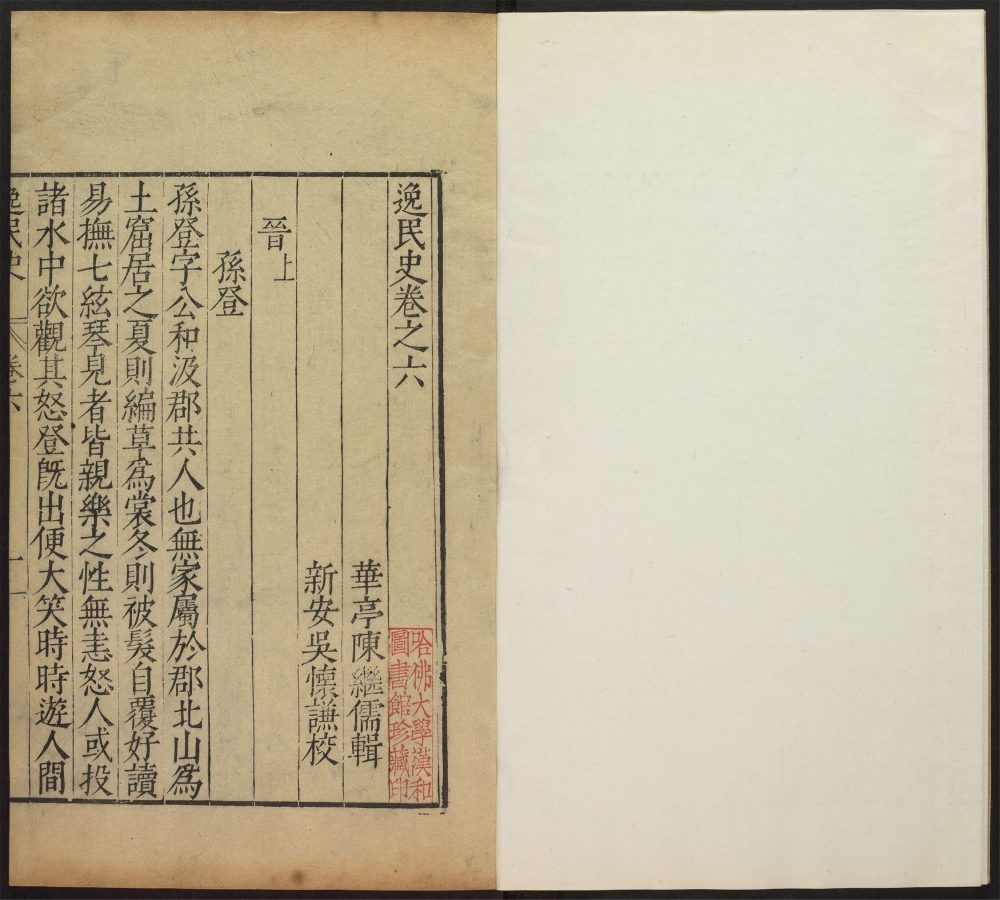 逸民史卷之六
哈佛大學漢和
圖書館珍藏印
華亭陳繼儒輯
新安吳懷謙校
晉上
孫登
孫登字公和汲郡共人也無家屬於郡北山爲
土窟居之夏則編草爲裳冬則被髮自覆好讀
易撫七絃琴見者皆親樂之性無恚怒人或投
諸水中欲觀其怒登旣出便大笑時時遊人間
逸民史 卷六 一